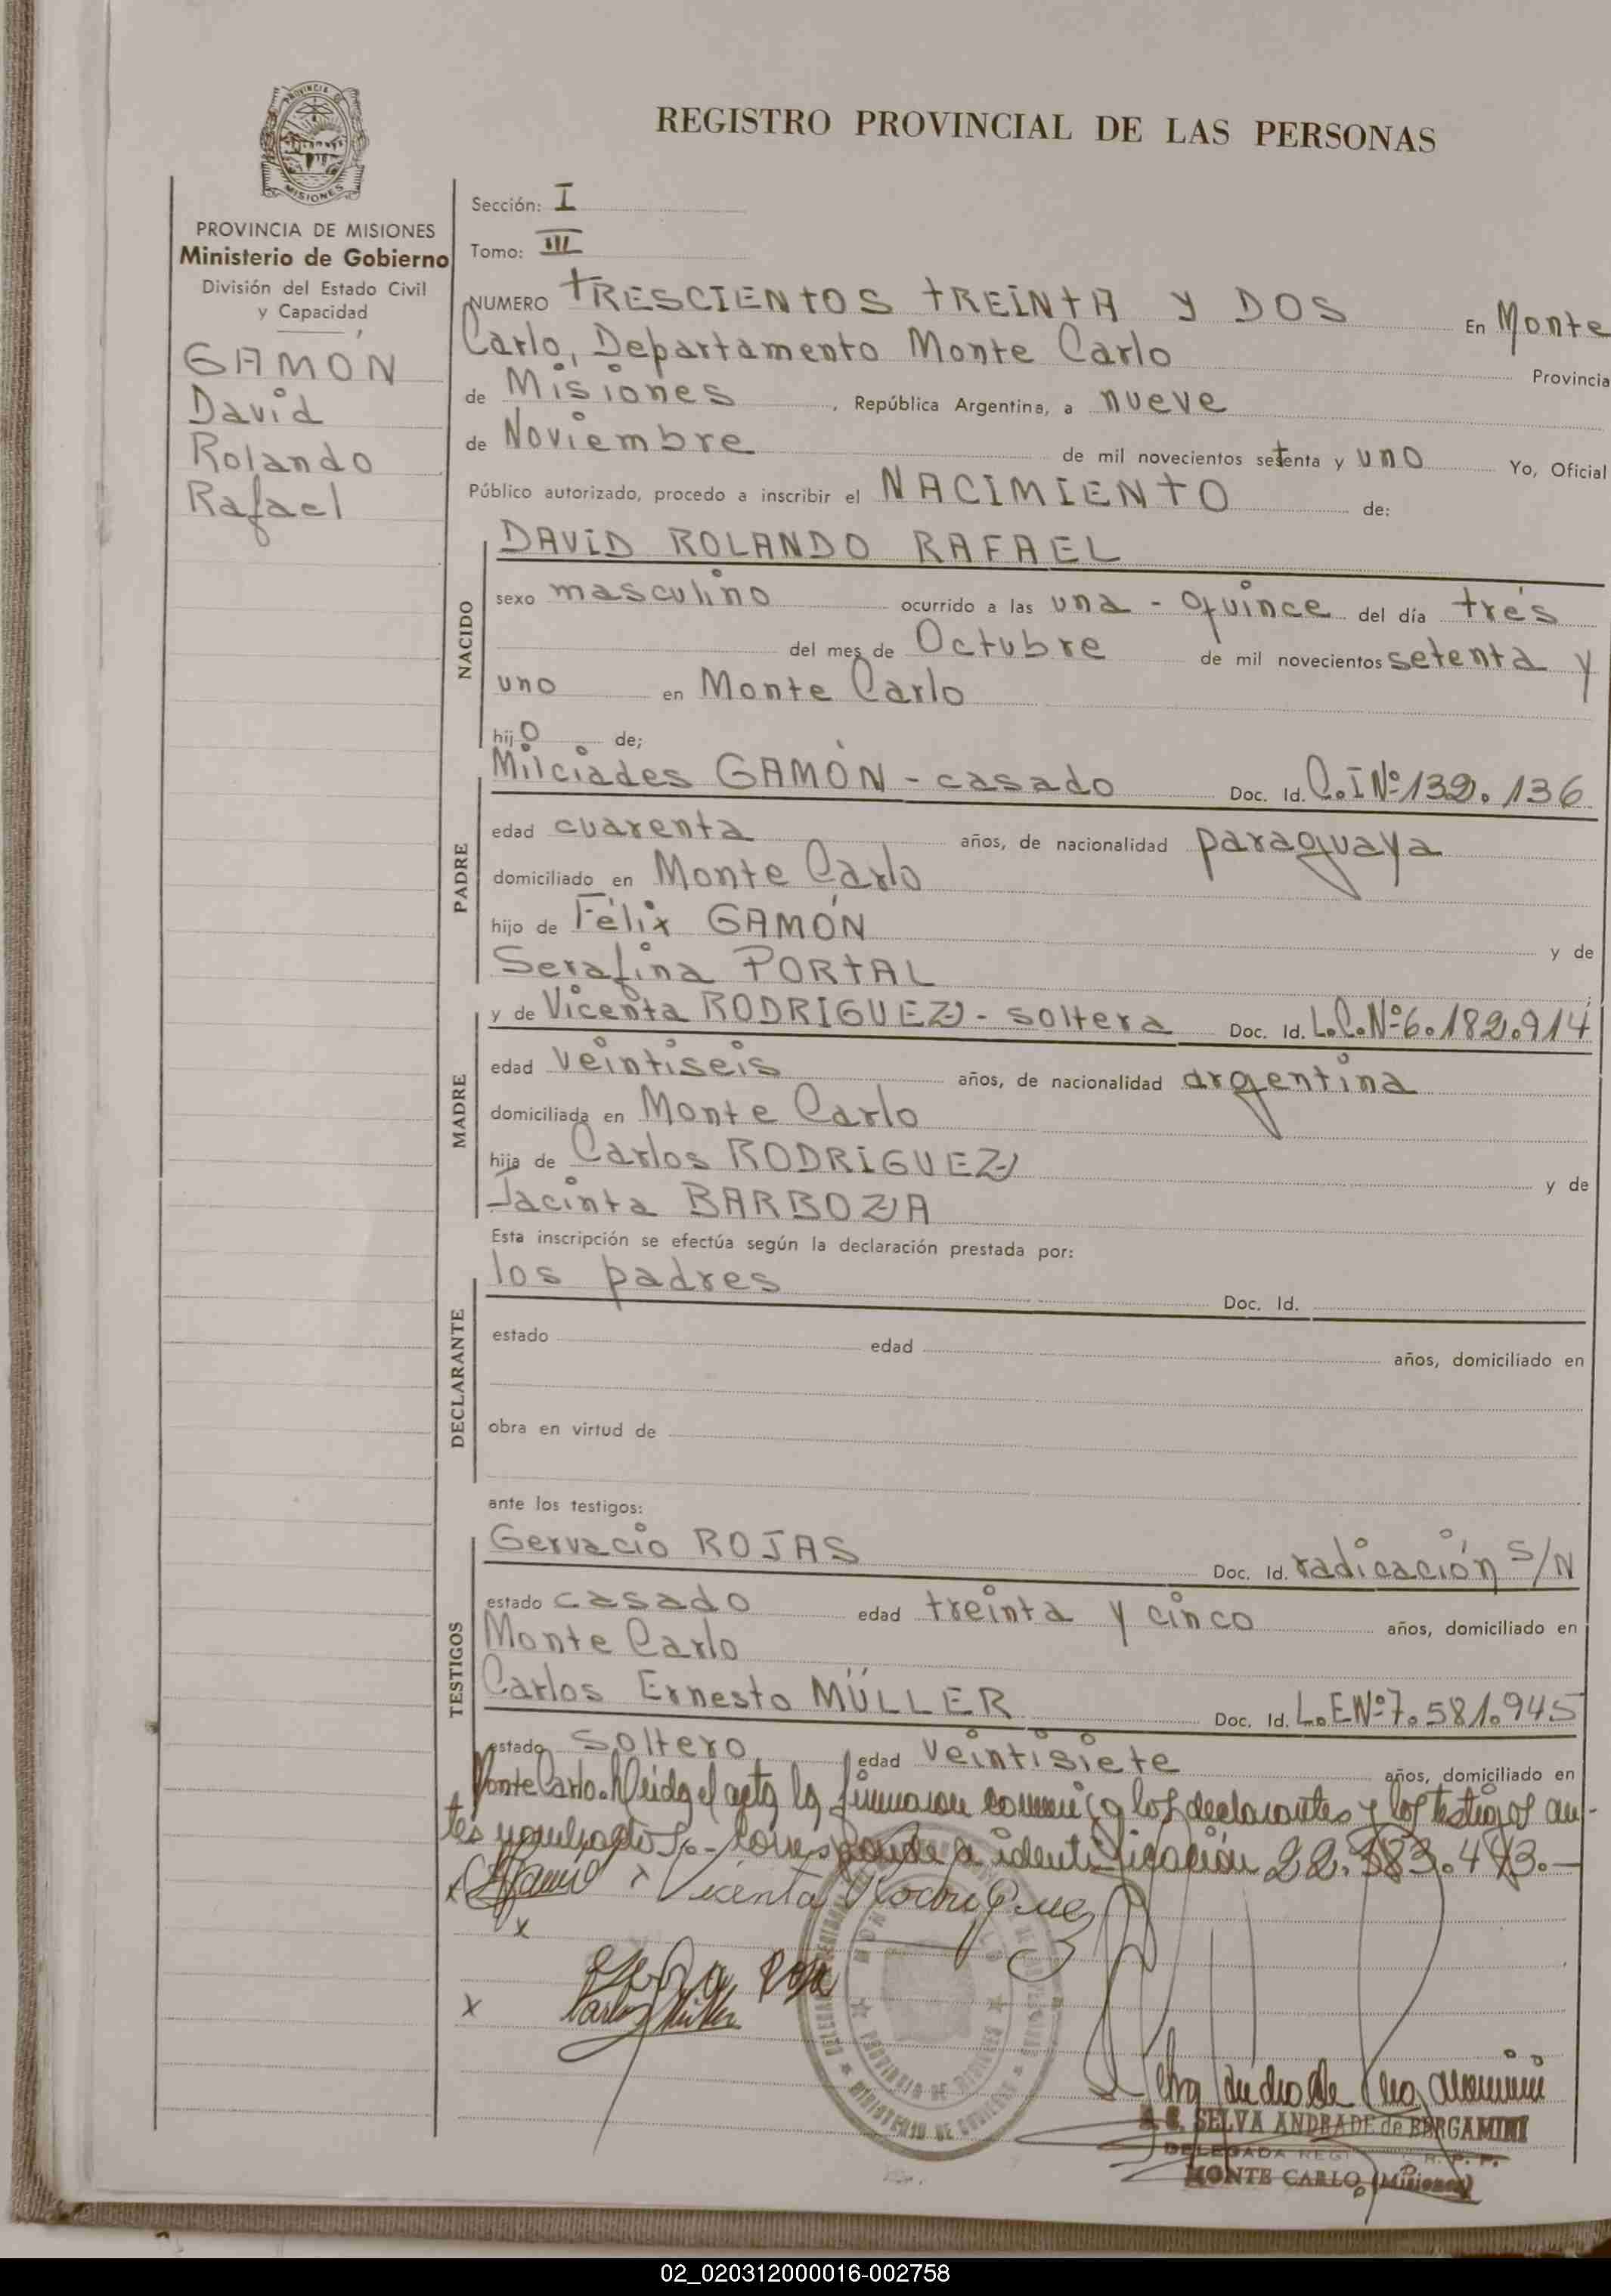 REGISTRO PROVINCIAL DE LAS PERSONAS
PROVINCIA DE
MISIONES
PROVINCIA DE MISIONES
Ministerio de Gobierno
División del Estado Civil
y Capacidad
GAMON
David
Rolando
Rafael
Sección: I
Tomo: III
NUMERO tRESCIENtOS tREINtA y DOS En Monte
Carlo, Departamento Monte Carlo Provincia
de Misiones, República Argentina, a nueve
de Noviembre de mil novecientos setenta y uno Yo, Oficial
Público autorizado, procedo a inscribir el NACIMIENtO de:
NACIDO
DAVID ROLANDO RAFAEL
sexo masculino ocurrido a las una - quince del día tres
del mes de Octubre de mil novecientos setenta y
uno en Monte Carlo
hijo de;
PADRE
Milciades GAMÓN - casado Doc. Id. C.I Nº 132.136
edad cuarenta años, de nacionalidad paraguaya
domiciliado en Monte Carlo
hijo de Félix GAMÓN y de
Serafina PORtAL
MADRE
y de Vicenta RODRIGUEZ - soltera Doc. Id. L.C.Nº 6.182.914
edad veintiseis años, de nacionalidad argentina
domiciliada en Monte Carlo
hija de Carlos RODRIGUEZ y de
Jacinta BARBOZA
Esta inscripción se efectúa según la declaración prestada por:
DECLARANTE
los padres Doc. Id.
estado edad años, domiciliado en
obra en virtud de
ante los testigos:
TESTIGOS
Gervacio ROJAS Doc. Id. radicación S/N
estado casado edad treinta y cinco años, domiciliado en
Monte Carlo
Carlos Ernesto MÜLLER Doc. Id. L.E Nº 7.581.945
estado soltero edad veintisiete años, domiciliado en
Monte Carlo. Leida el acta la firmaron conmigo los declarantes y los testigos an-
tes nombrados.- Corresponde a identificación 22.383.
Vicenta Rodriguez
x
x Carlos Müller
PROVINCIA DE MISIONES
MINISTERIO DE GOBIERNO
SELVA ANDRADE de BERGAMINI
DELEGADA
MONTE CARLO (Misiones)
02_020312000016-002758